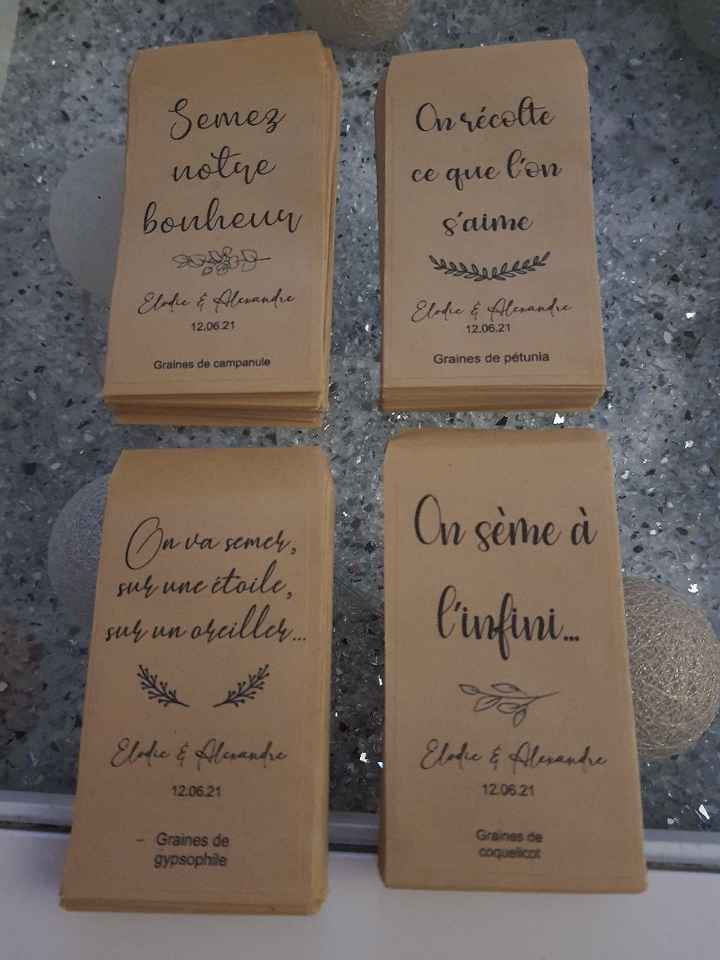 Semez
notre
bonheur
Elodie & Alexandre
12.06.21
Graines de campanule
On récolte
ce que l'on
s'aime
Elodie & Alexandre
12.06.21
Graines de pétunia
On va semer,
sur une étoile,
sur un oreiller...
Elodie & Alexandre
12.06.21
- Graines de
gypsophile
On sème à
l'infini...
Elodie & Alexandre
12.06.21
Graines de
coquelicot